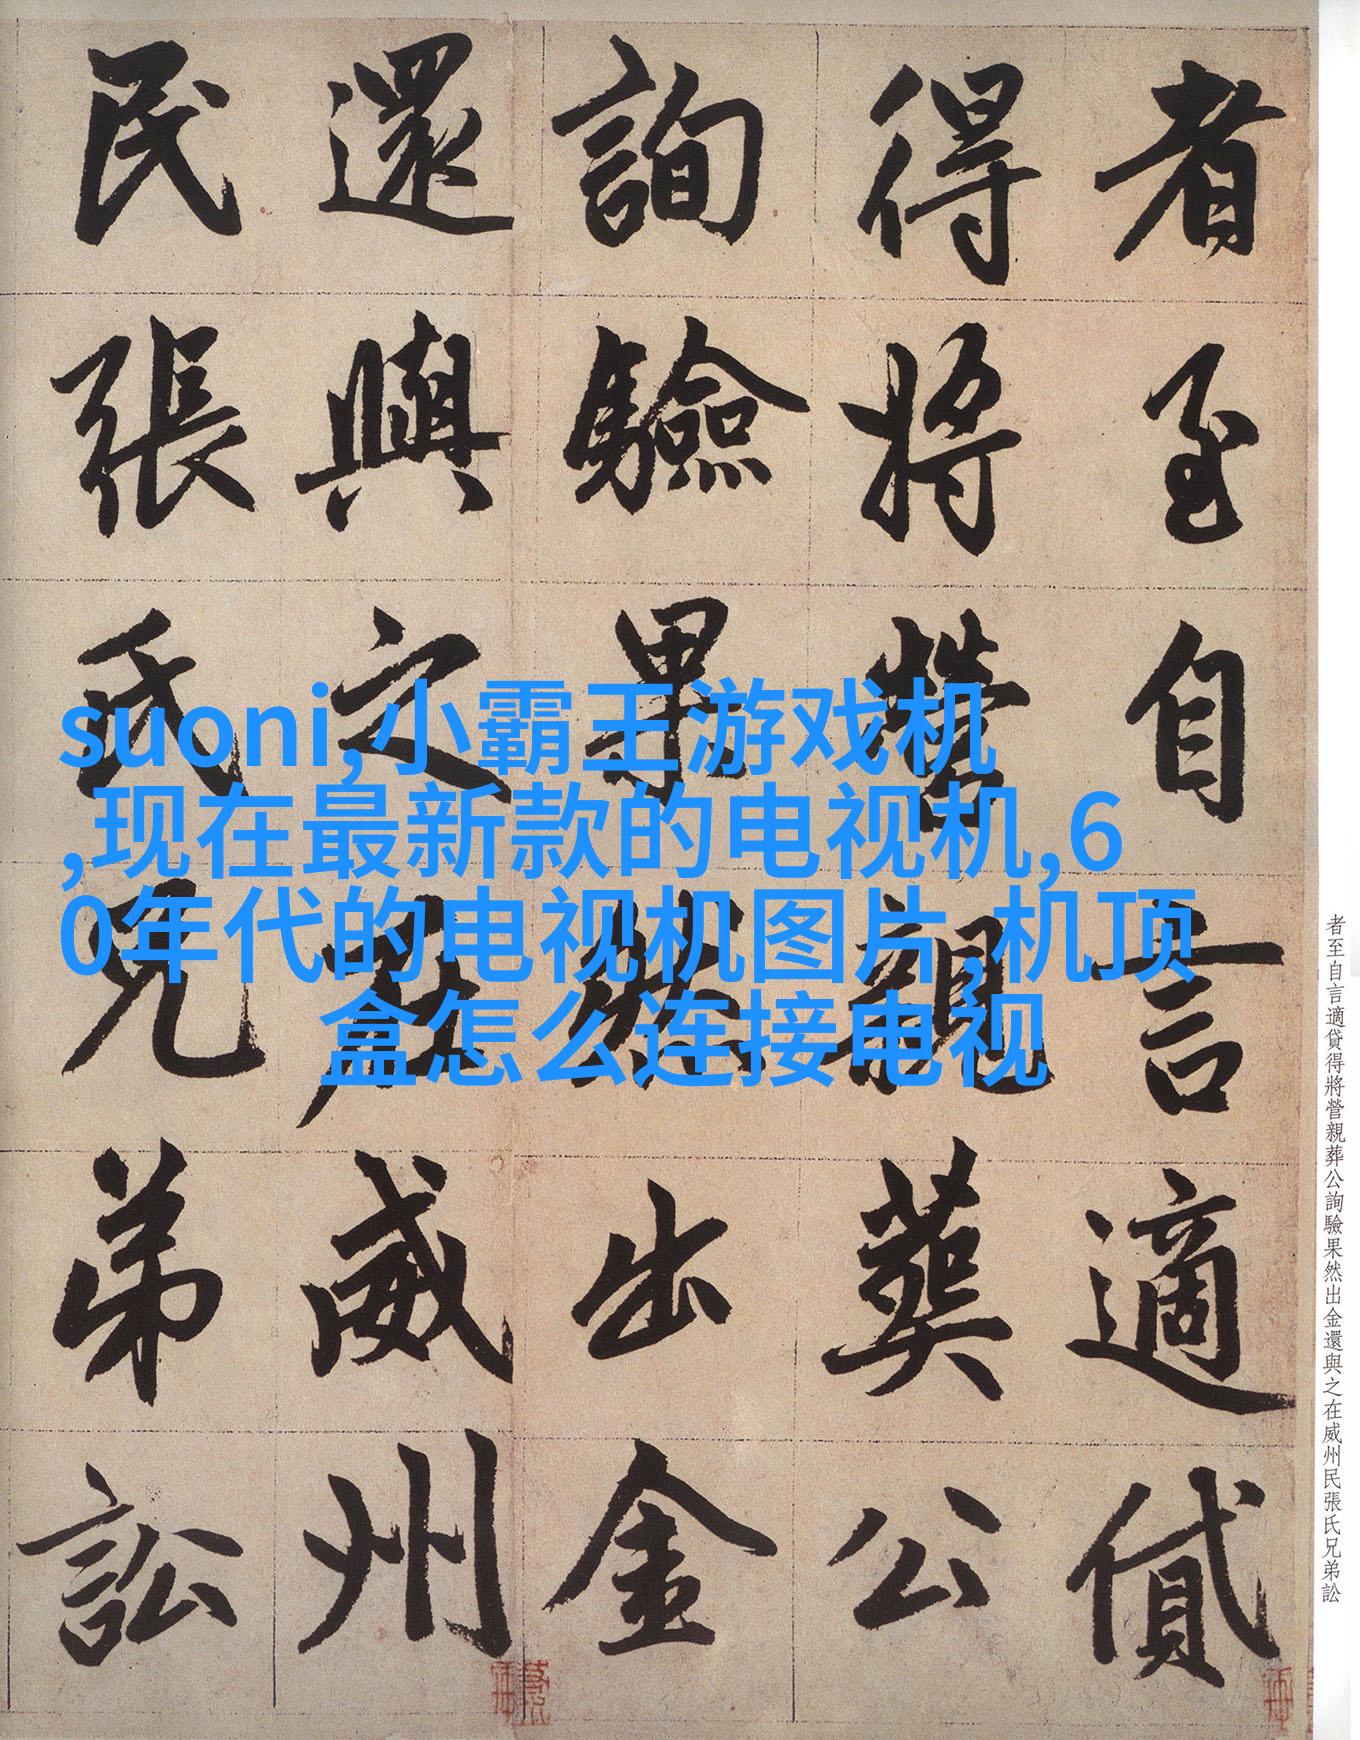 者至自言適貸
得將營親葬公
詢驗果然出金
還與之在威州
民張氏兄弟訟
suoni,小霸王游戏机
,现在最新款的电视机,6
0年代的电视机图片,机顶
盒怎么连接电视
者至自言適貸得將營親葬公詢驗果然出金還與之在威州民張氏兄弟訟